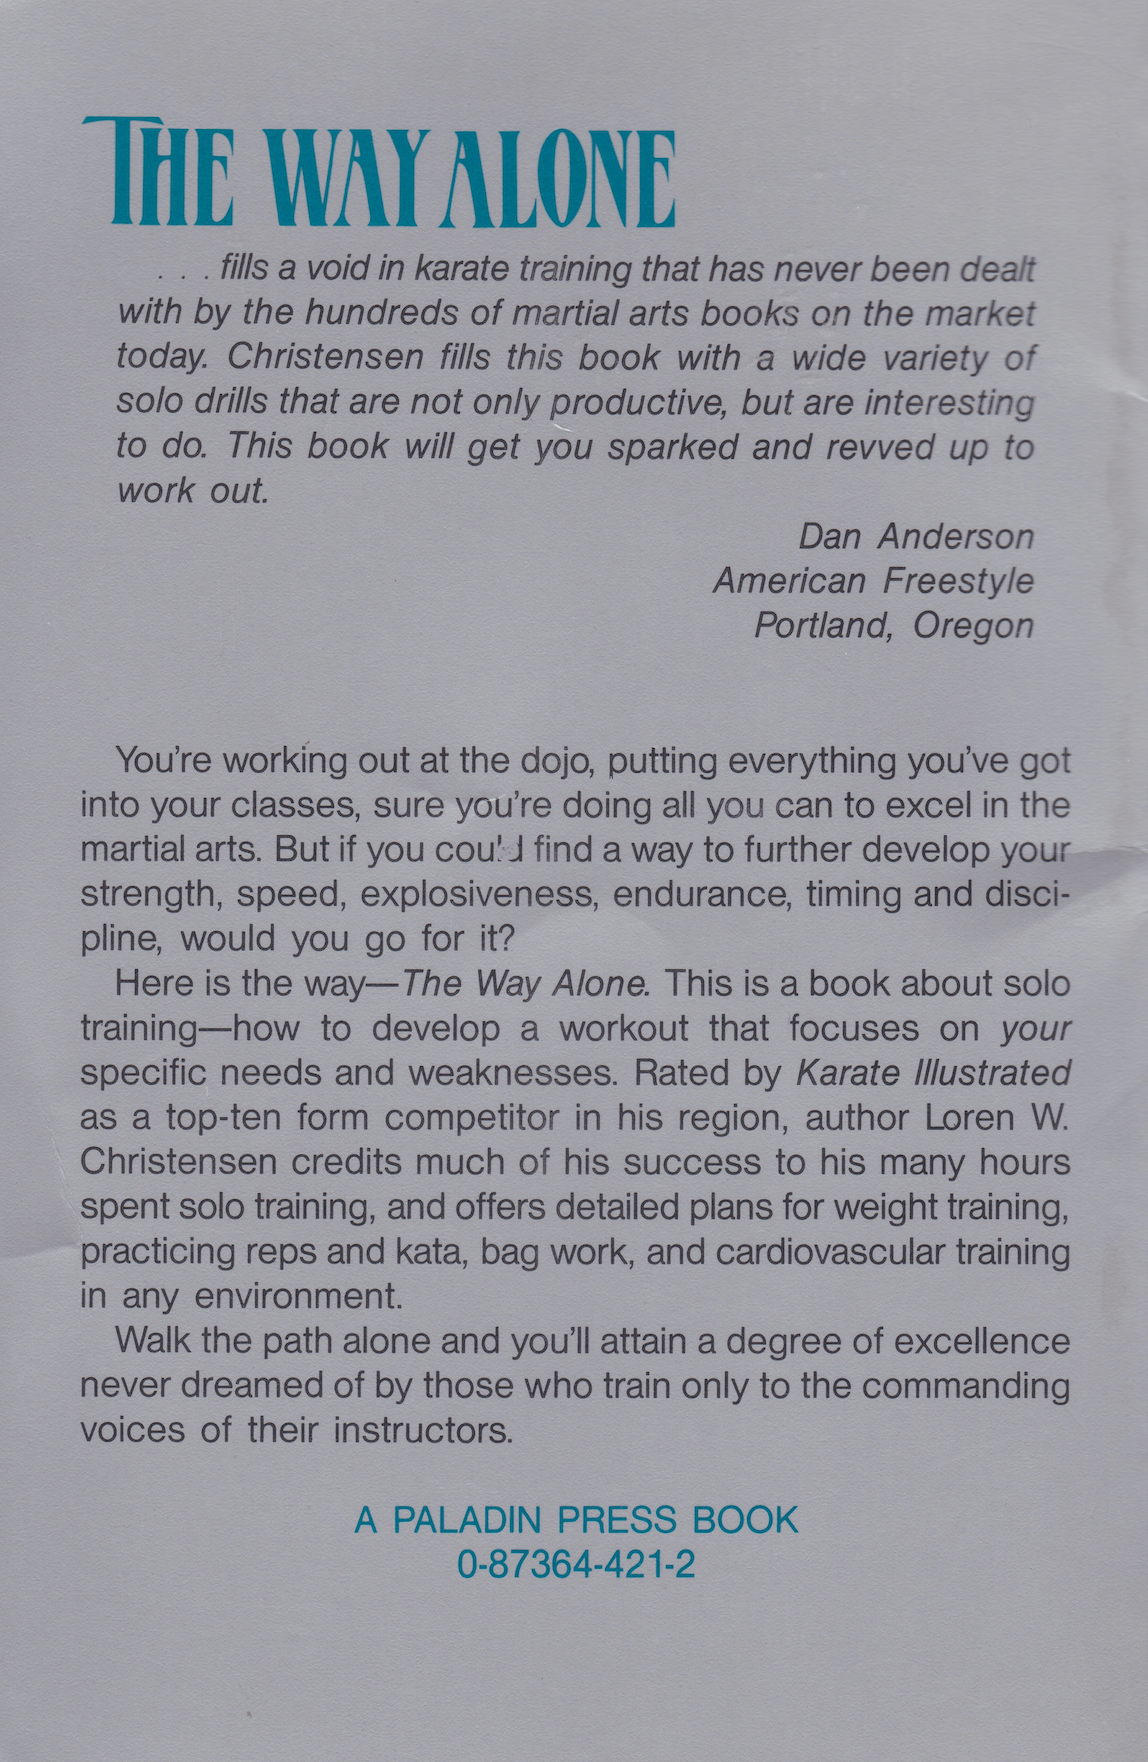 THE WAY ALONE
. . . fills a void in karate training that has never been dealt
with by the hundreds of martial arts books on the market
today. Christensen fills this book with a wide variety of
solo drills that are not only productive, but are interesting
to do. This book will get you sparked and revved up to
work out.
Dan Anderson
American Freestyle
Portland, Oregon
You're working out at the dojo, putting everything you've got
into your classes, sure you're doing all you can to excel in the
martial arts. But if you could find a way to further develop your
strength, speed, explosiveness, endurance, timing and disci-
pline, would you go for it?
Here is the way—The Way Alone. This is a book about solo
training—how to develop a workout that focuses on your
specific needs and weaknesses. Rated by Karate Illustrated
as a top-ten form competitor in his region, author Loren W.
Christensen credits much of his success to his many hours
spent solo training, and offers detailed plans for weight training,
practicing reps and kata, bag work, and cardiovascular training
in any environment.
Walk the path alone and you'll attain a degree of excellence
never dreamed of by those who train only to the commanding
voices of their instructors.
A PALADIN PRESS BOOK
0-87364-421-2